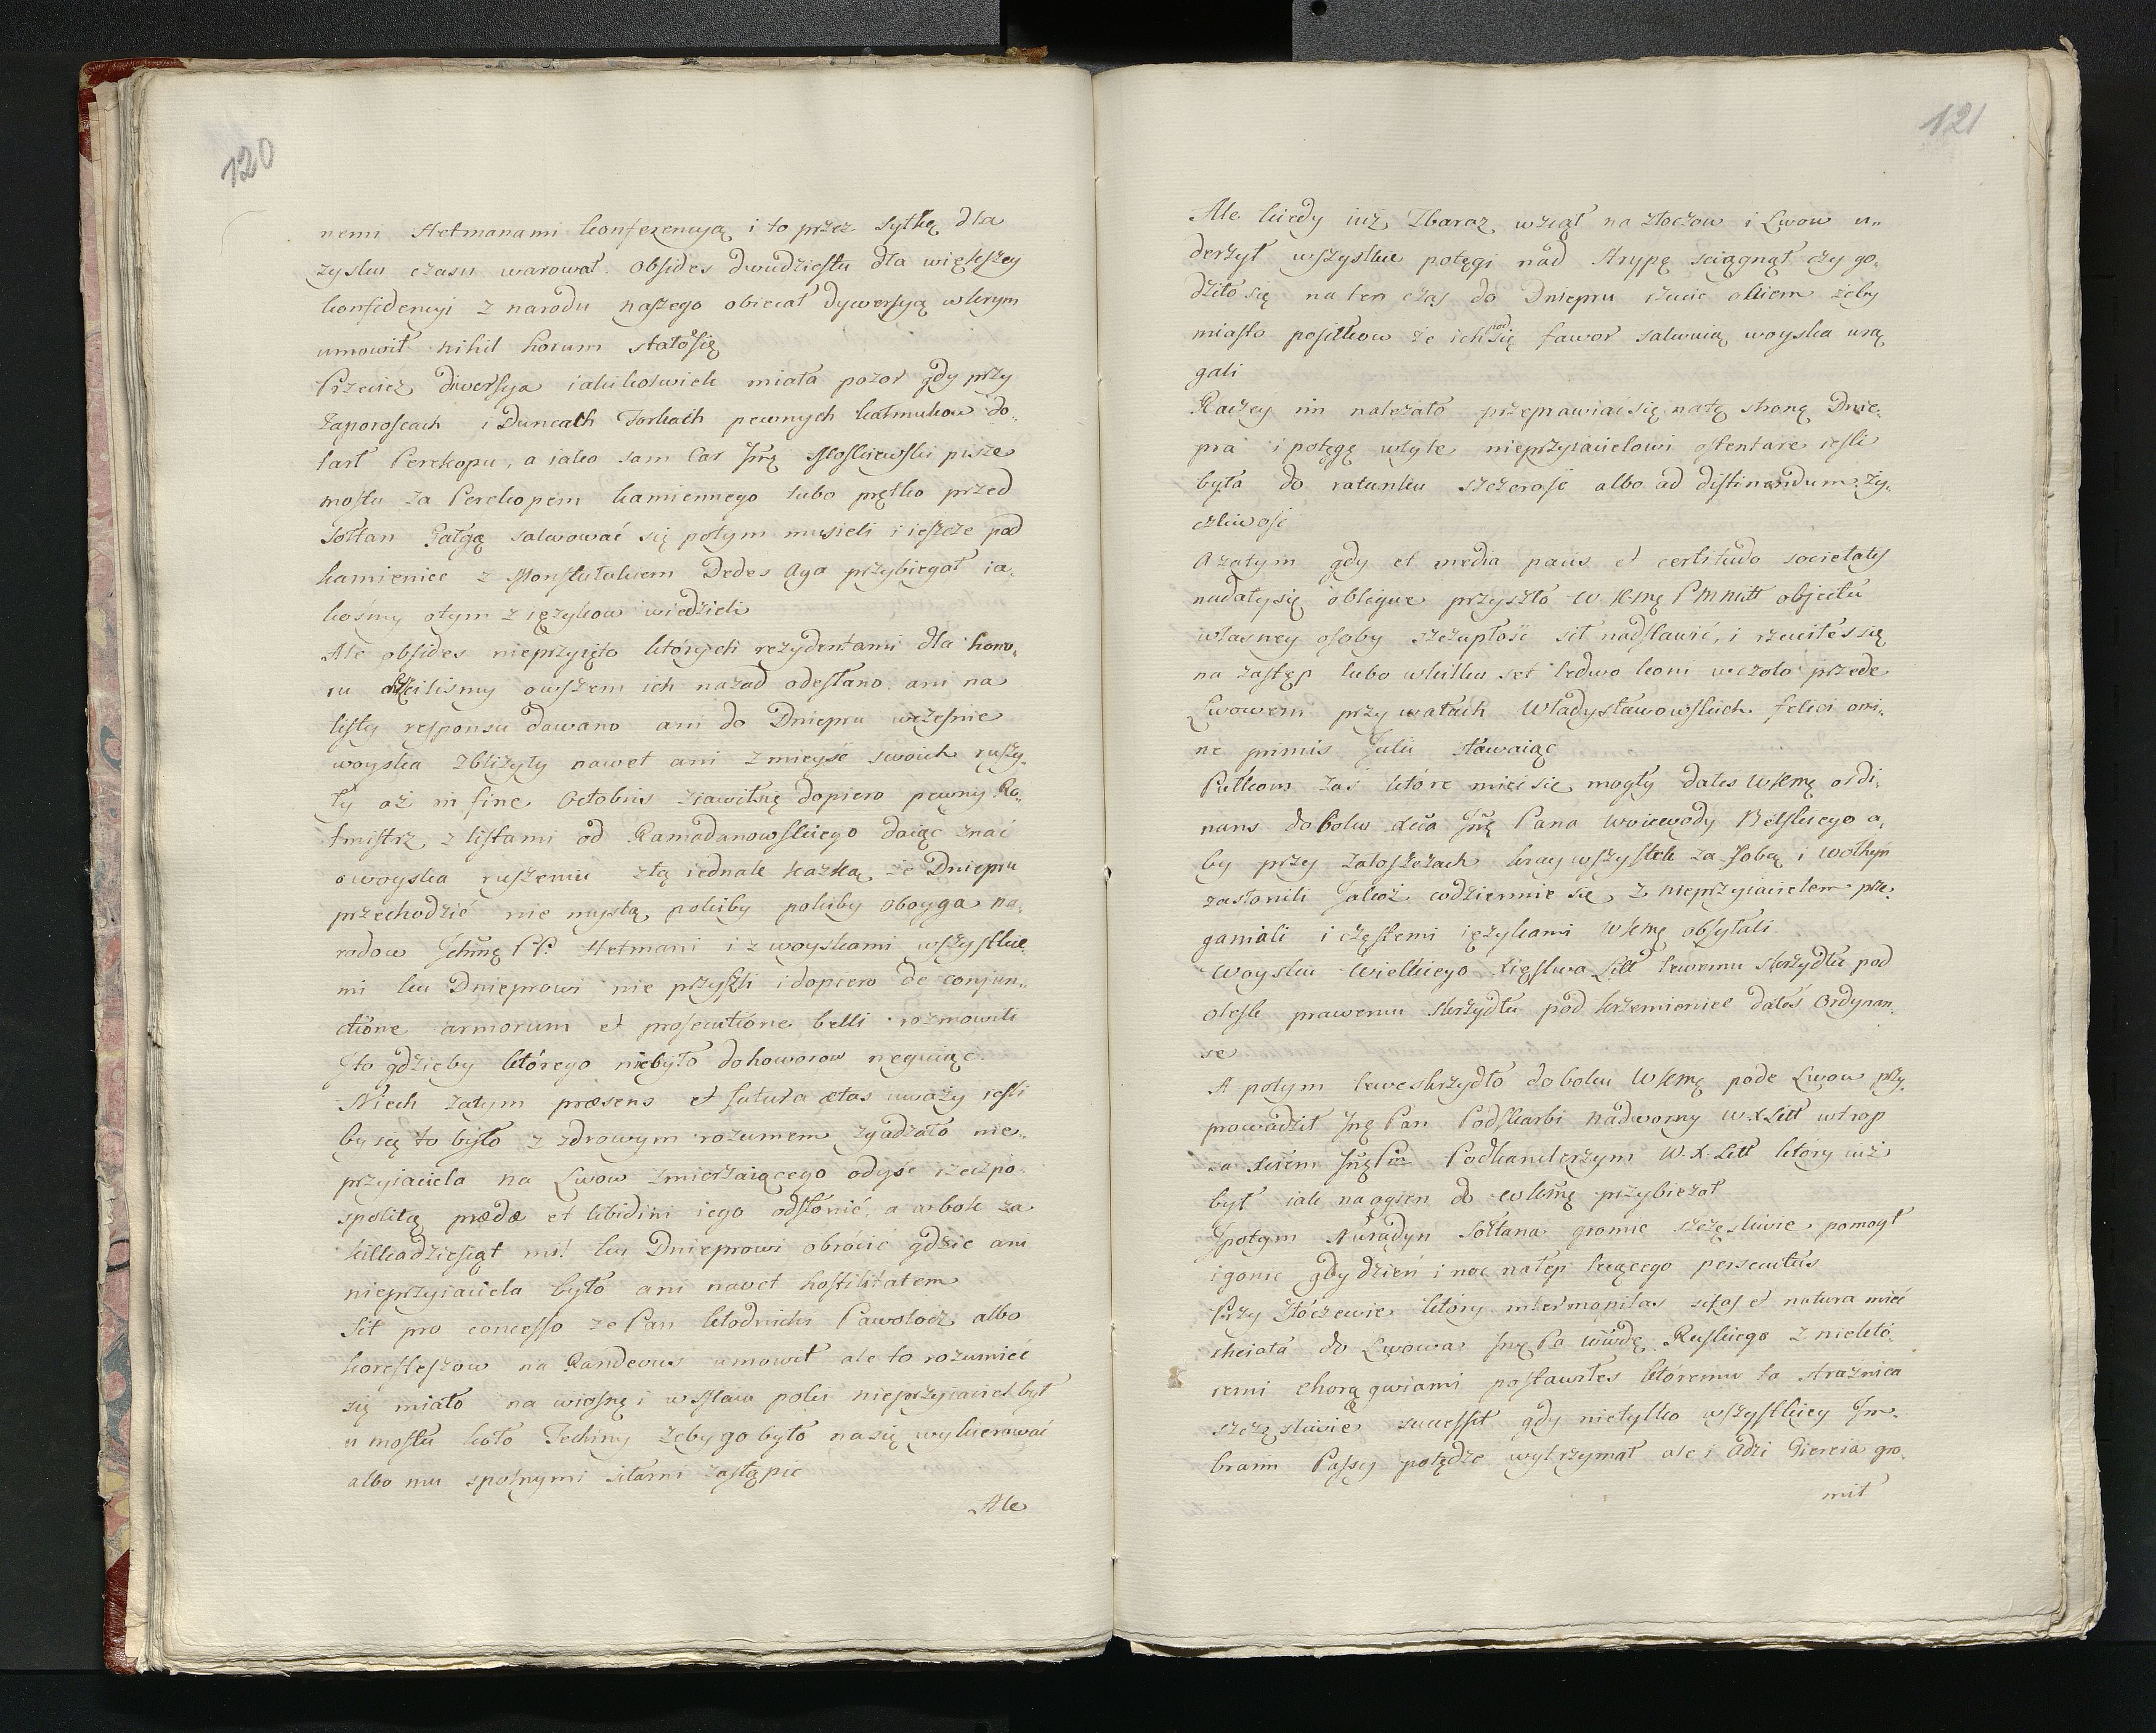 120
nemi Hetmanami konferencyą i to przez sytką dla
zysku czasu warował. Obsides dwudziestu dla więkſzey
konfidencyi z narodu naſzego obiecał dywerſyą w krym
umowił nihil horum stałoſię
Przecież diwerſya iakikolwiek miała pozor gdy przy
Zaporoſcach i Duncach Torkach pewnych kałmukow do„
tarł Perekopu, a iako sam Car Jmę Moſkiewſki pisze
moſtu za Perekopem kamiennego lubo prętko przed
Sołtan Gałgą salwować się potym musieli i ieſzcze pod
kamieniec z Monſtutukiem Dedes Aga przybiegał ia„
kośmy otym z ięzykow wiedzieli
Ale obſides nieprzyięto których rezydentami dla hono„
ru  owſzem ich nazad odeſłano, ani na
liſty reſponsu dawano ani do Dniepru wczeſnie
woyska zbliżyły nawet ani z mieyść swoich ruſzy„
ły aż in fine Octobris ziawiłsię dopiero pewny Ro„
tmiſtrz z liſtami od Ramadanowſkiego daiąc znać
o woyska ruſzeniu złą iednak kazką że Dniepru
przechodzić nie myslą pokiby pokiby oboyga na„
rodow Jchmę PP. Hetmani i z woyskami wſzyſtkie„
mi ku Dnieprowi nie przyſzli i dopiero de conjun„
ctione armorum et prosecutione belli rozmowili
Jto gdzieby którego niebyło dohoworow neguiąc.
Niech zatym præsens et futura ætas uważy ieſli
by się to było z zdrowym rozumem zgadzało nie„
przyiaciela na Lwow zmierzaiącego odyść rzeczpo„
spolitą prædæ et libidini iego odſłonić, a ambok za
kilkadzieſiąt mil ku Dnieprowi obrócić gdzie ani
nieprzyiaciela było ani nawet hoſtilitatem
Sit pro conceſſo że Pan kłodnicki Pawołocz albo
koreſteſzow na Randevus umowił ale to rozumieć
się miało na wioſnę i w ſtaw poki nieprzyiaciel był
u moſtu koło Techiny żeby go było nasię wykierować
albo mu spolnymi siłami zastąpic
Ale
121
Ale kiedy iuż Zbaraz wziął na złoczow i Lwow u„
derzył wſzyſtkie potęgi nad Strypę sciągnął czy go„
dziłosię na ten czas do Dniepru rzucić okiem żeby
miaſto poſiłkow że ich nad się fawor salwuią woyska urą
gali
Raczey im należało przeprawiać się natę stronę Dnie„
pra i potęgę wtyle nieprzyiacielowi oſtentare ieſli
była do ratunku szczeroſć albo ad diſtinendum ży„
czliwoſć
A zatym gdy et media pacis et certitudo societatis
nadałysię obligue przyszło W Kmę PMMitt objectu
własney oſoby szczupłość sił nadſtawić, i rzuciłes się
na zastęp lubo wkilku set ledwo koni wczoło przede
Lwowem przy wałach Władysławowſkich felici omi„
ne primis Julii stawaiąc
Pułkom zaś które mieć się mogły dałes WKmę ordi„
nans do boku  Jmę Pana Woiewody Bełſkiego a„
by przy załoſzczach kray wſzystek za ſobą i wołkyń
zasłonili Jakoż codziennie się z nieprzyiacielem prze„
ganiali i częſtemi ięzykami WKmę obſyłali.
Woysku Wielkiego Xięſtwa Litt lewemu skrzydłu pod
oleſk prawemu skrzydłu pod krzemieniec dałes Ordynan„
se
A potym lewe skrzydło do boku WKmę pode Lwow przy„
prowadził Jmę Pan Podſkarbi nadworny W.X Litt wtrop
za   Podkanclerzym W. X. Litt który iuż
był iak naogien do WKmę przybieżał
Jpotym Nuradyn Sołtana gromic szczęsliwie pomogł
i gonic gdy dzień i noc natęp lecącego persecutus
Przy Złóczewie który intermopilas sitas et natura mieć
chciała do Lwowa Jmę Pa wwdę Ruſkiego z niektó„
remi chorągwiami poſtawiłes któremu ta strażnica
szczęsliwie succeſſit gdy nietylko wſzyſtkiey Jm„
braim Paſzy potędze wytrzymał ale i Adzi Giereia gro„
mił